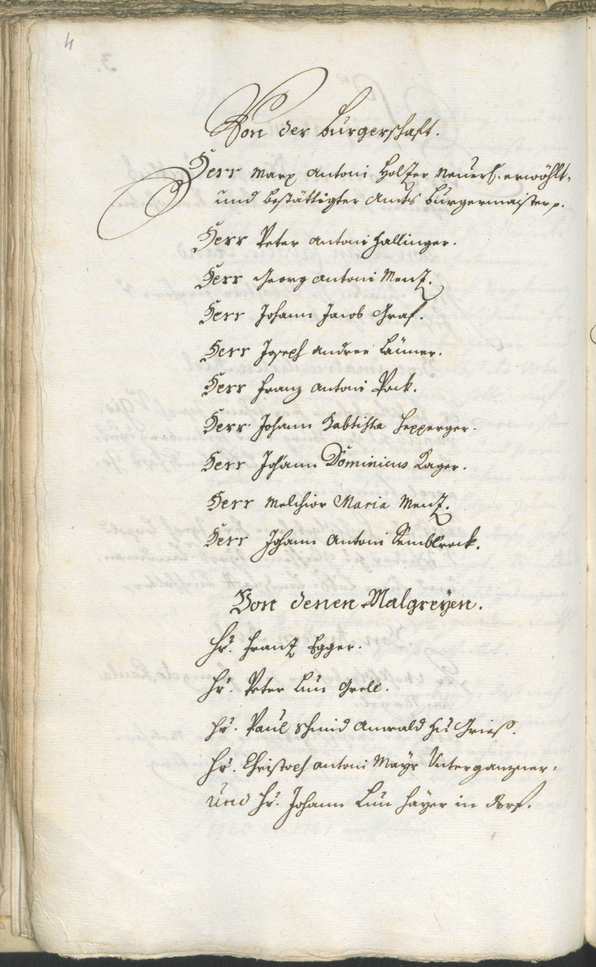 4
Von der Burgerschafft.
Herr Marx Antoni Holzer neuerl. erwöhlt-
und bestättigter Ambts Burgermaister p.
Herr Peter Antoni Hallinger.
Herr Georg Antoni Menz.
Herr Johann Jacob Graf.
Herr Joseph Andree
Herr Franz Antoni Pock.
Herr Johann Babtista
Herr Johann Dominicus Kager.
Herr Melchior Maria Menz.
Herr Johann Antoni
Von denen Malgreyen.
Hr. Frantz Egger.
Hr. Peter
Hr. Paul Schmid Anwald zu Grieß.
Hr. Christoph Antoni Mayr Unterganzner.
und Hr. Johann in Dorf.